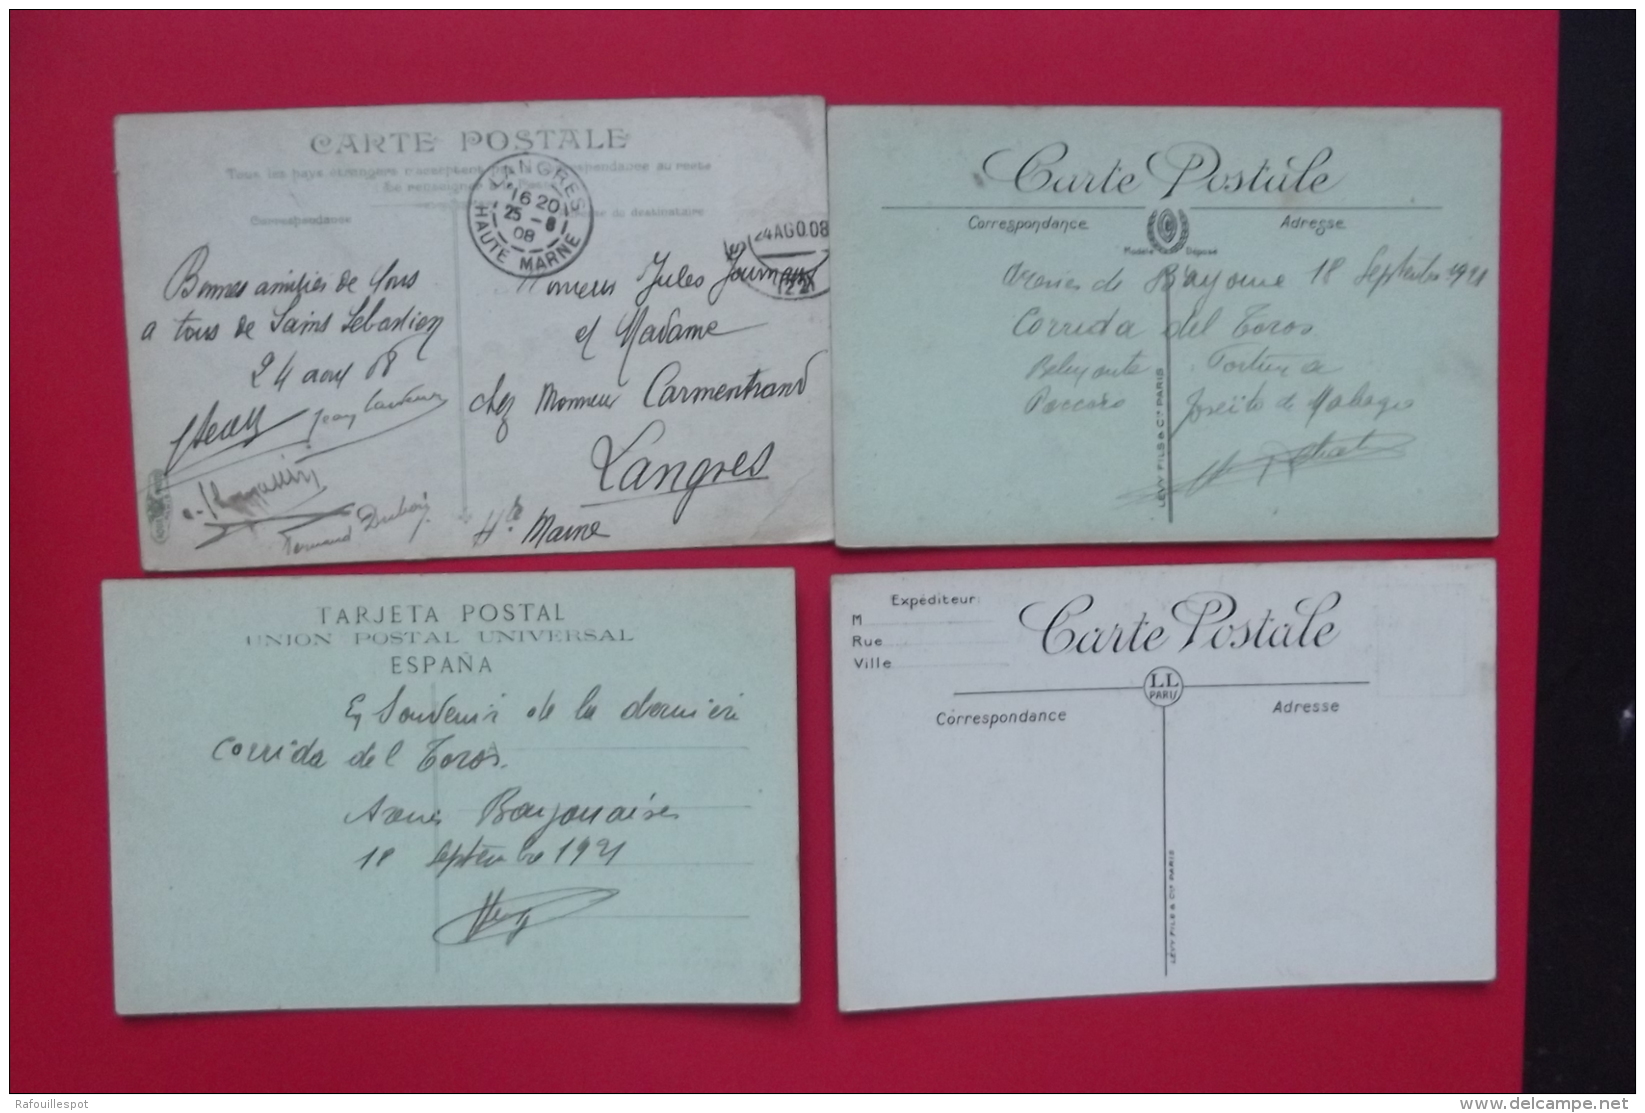 CARTE POSTALE
Tous les pays étrangers n'acceptent pas la correspondance au recto
Se renseigner à la Poste
Correspondance
du destinataire
LANGRES
16 20
25 - 8
08
HAUTE MARNE
24 AGO.08
Bonnes amitiés de tous
a tous de Saint Sebastien
24 aout 08
Jean
Fernand Dubois
Monsieur Jules
et Madame
chez Monsieur Carmentrand
Langres
Hte Marne
Carte Postale
Correspondance
Adresse
Modèle Déposé
Arènes de Bayonne 18 Septembre 1921
Corrida del Toros
Belmonte Fortuna
Joseito de Malaga
LÉVY FILS & Cie PARIS
TARJETA POSTAL
UNION POSTAL UNIVERSAL
ESPAÑA
En Souvenir de la derniere
Corrida del Toros.
Arenes Bayonnaises
18 Septembre 1921
Expéditeur:
M
Rue
Ville
Carte Postale
LL
PARIS
Correspondance
Adresse
LÉVY FILS & Cie PARIS
Rafouillespot
www.delcampe.net